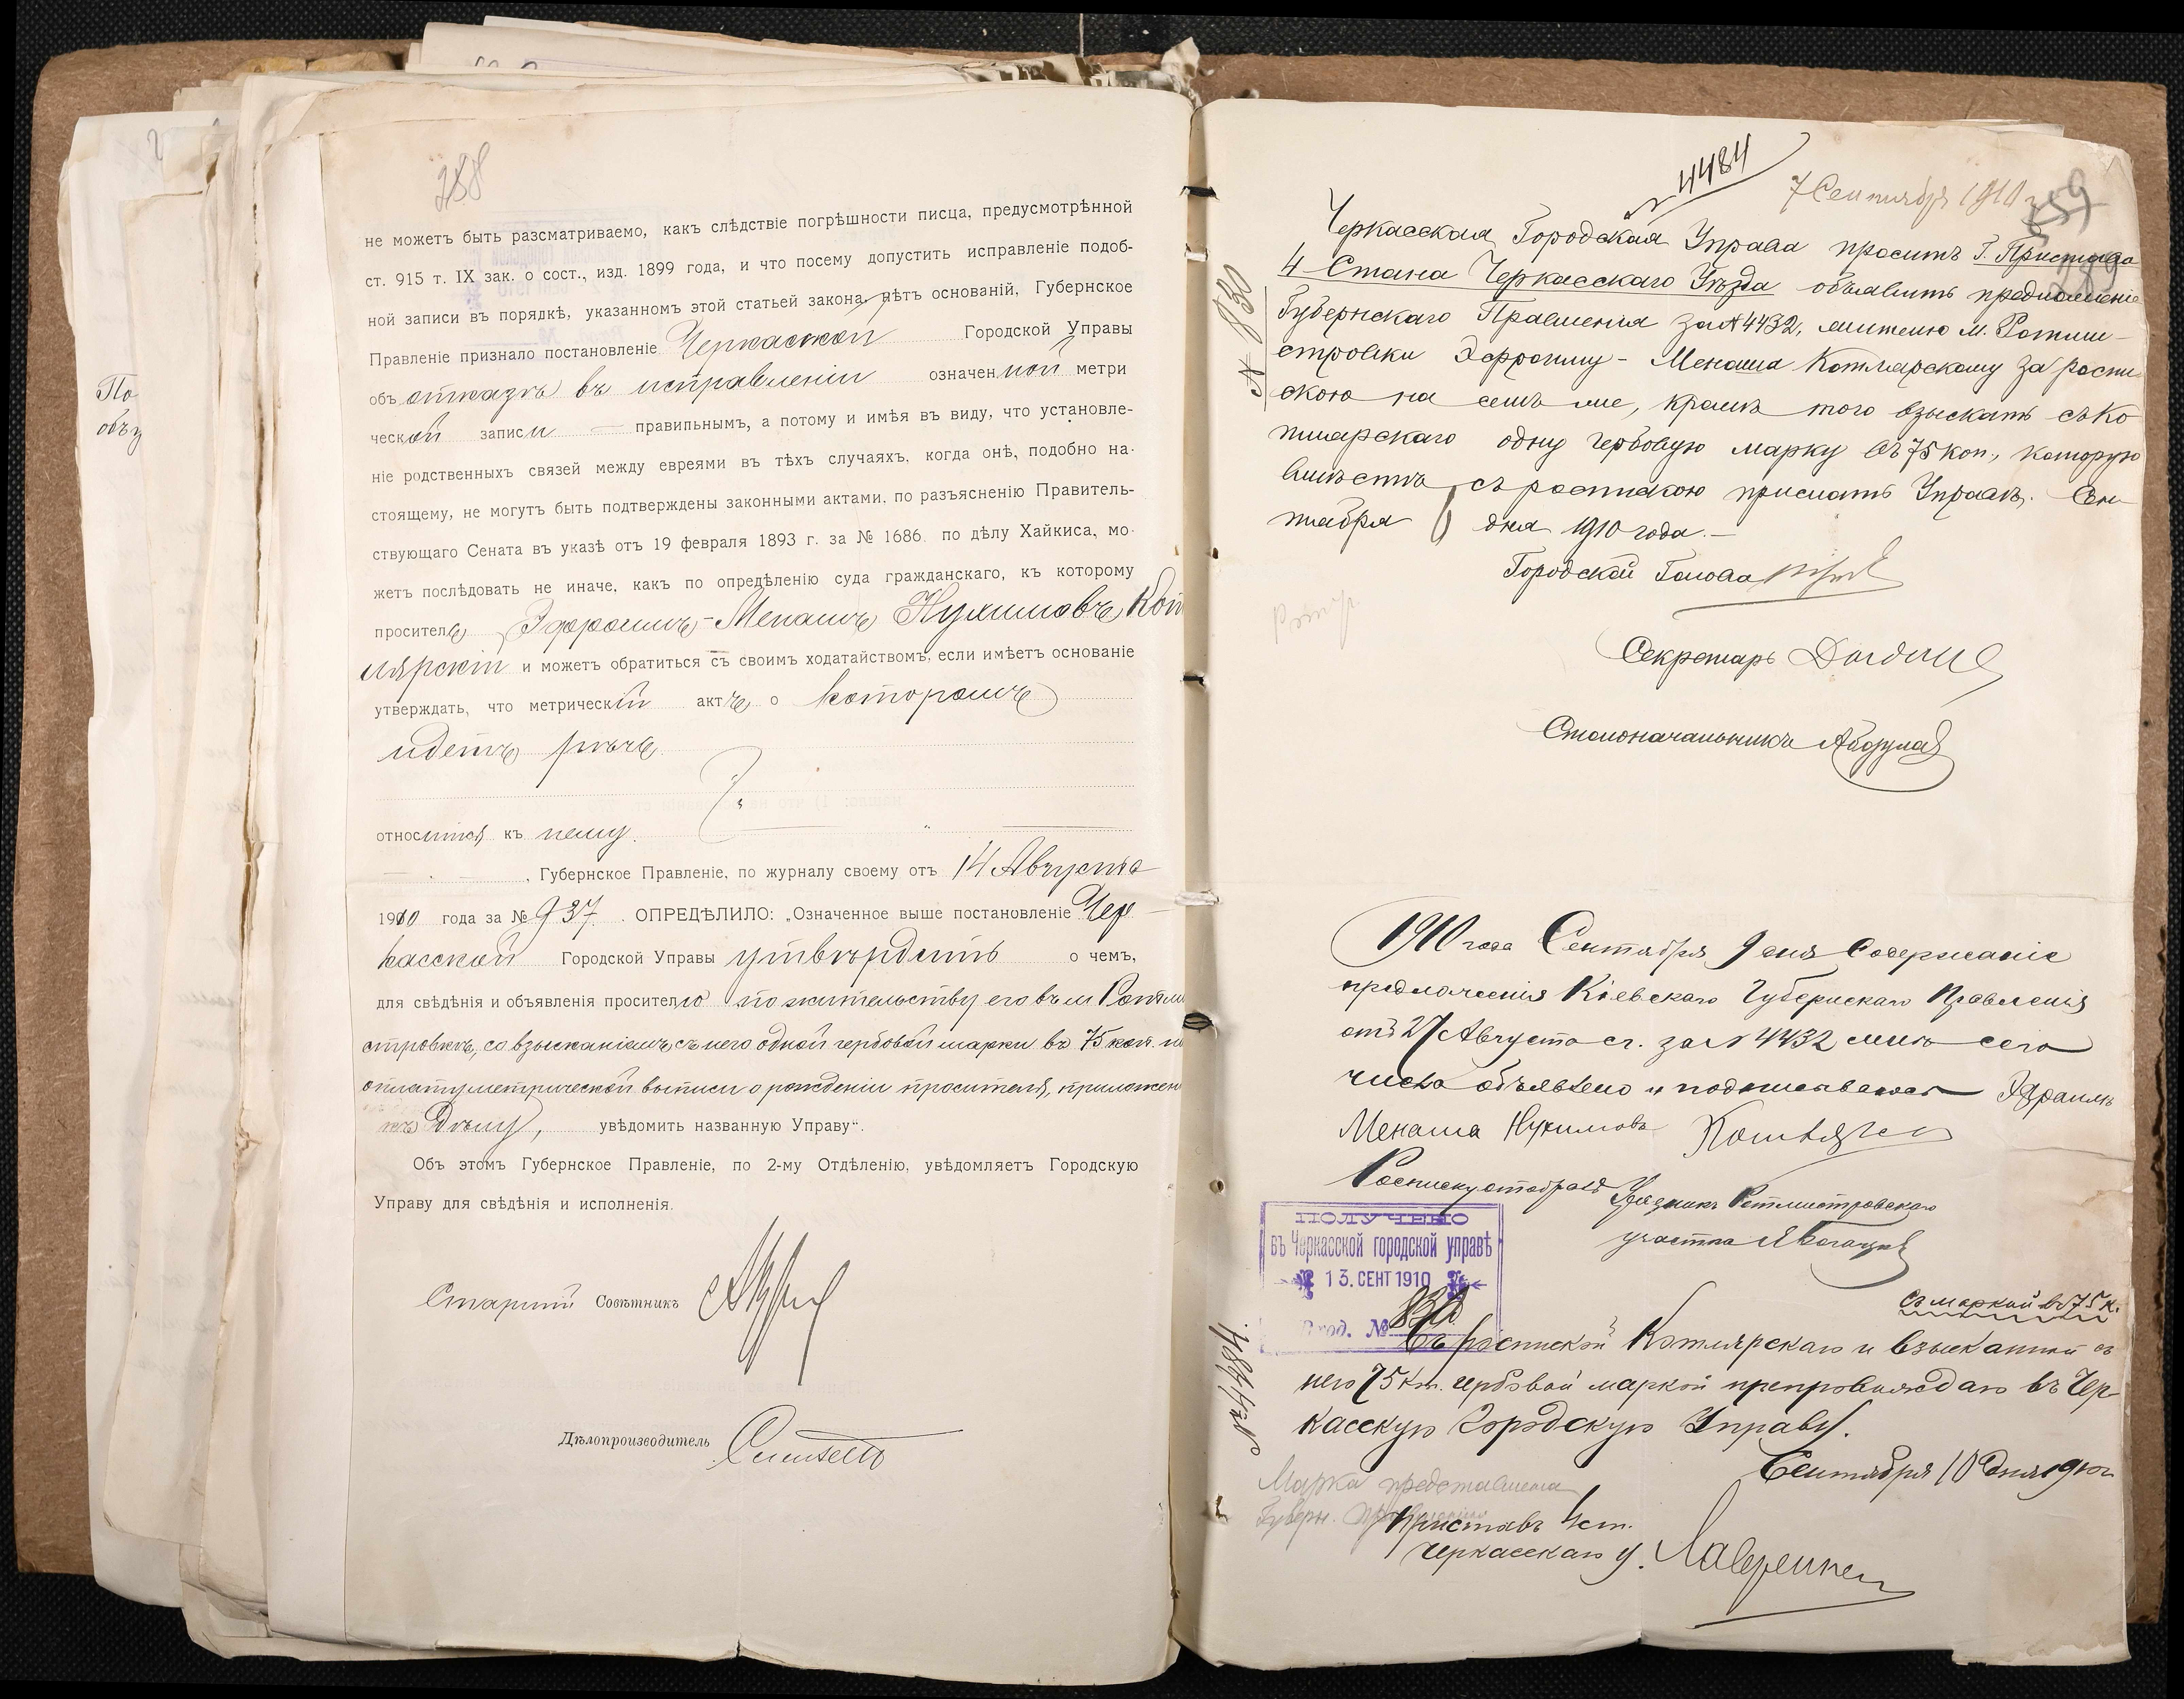 По
объ
288
не можетъ быть разсматриваемо, какъ слѣдствіе погрѣшности писца, предусмотрѣнной
ст. 915 т. IX зак. о сост., изд. 1899 года, и что посему допустить исправленіе подоб-
ной записи въ порядкѣ, указанномъ этой статьей закона, нѣтъ основаній, Губернское
Правленіе признало постановленіе Черкасской Городской Управы
объ отказѣ въ исправленіи означенной метри
ческой записи — правильнымъ, а потому и имѣя въ виду, что установле-
ніе родственныхъ связей между евреями въ тѣхъ случаяхъ, когда онѣ, подобно на-
стоящему, не могутъ быть подтверждены законными актами, по разъясненію Правитель-
ствующаго Сената въ указѣ отъ 19 февраля 1893 г. за № 1686 по дѣлу Хайкиса, мо-
жетъ послѣдовать не иначе, какъ по опредѣленію суда гражданскаго, къ которому
проситель Эфроимъ-Менашъ Нухимовъ Кот
лярскій и можетъ обратиться съ своимъ ходатайствомъ, если имѣетъ основаніе
утверждать, что метрическій актъ о которомъ
идетъ рѣчь
относится къ нему.
, Губернское Правленіе, по журналу своему отъ 14 Августа
1910 года за № 937. ОПРЕДѢЛИЛО: „Означенное выше постановленіе Чер-
касской Городской Управы утвердить о чемъ,
для свѣдѣнія и объявленія просителю по жительству его въ м. Ротми
стровкѣ, со взысканіемъ съ него одной гербовой марки въ 75 коп. н
оплату метрической выписи о рожденіи просителя, приложен
къ дѣлу, увѣдомить названную Управу“.
Объ этомъ Губернское Правленіе, по 2-му Отдѣленію, увѣдомляетъ Городскую
Управу для свѣдѣнія и исполненія.
Старшій Совѣтникъ
Дѣлопроизводитель
4484
7 Сентября 1910 г.
289
Черкасская Городская Управа проситъ Г. Пристава
4 Стана Черкасскаго Уѣзда объявить предложеніе
Губернскаго Правленія за № 4432, жителю м. Ротми-
стровки Эфроиму-Менаша Котлярскому за роспи
скою на семъ же, кромѣ того взыскать съ Ко
тлярскаго одну гербовую марку въ 75 коп., которую
вмѣстѣ съ роспискою прислать Управѣ. Сен-
тября дня 1910 года.—
№ 830
Городской Голова
Секретарь
Столоначальникъ
1910 года Сентября 9 дня Содержаніе
предложенія Кіевскаго Губернскаго Правленія
отъ 27 Августа с.г. за № 4432 мнѣ сего
числа объявлено и подписываюсь Эфраимъ
Менаша Нухимовъ
Росписку отобралъ Урядникъ Ротмистровскаго
участка
ПОЛУЧЕНО
въ Черкасской городской управѣ
13. СЕНТ 1910
Вход. № 830
съ маркой въ 75 к.
Съ роспиской Котлярскаго и взысканной съ
него 75 коп. гербовой маркой препровождаю въ Чер-
касскую Городскую Управу.
Сентября 10 дня 1910 г.
№ 4484
Марка представлена
Губерн. Правленію
Приставъ 4 ст.
Черкасскаго у. Лавренко